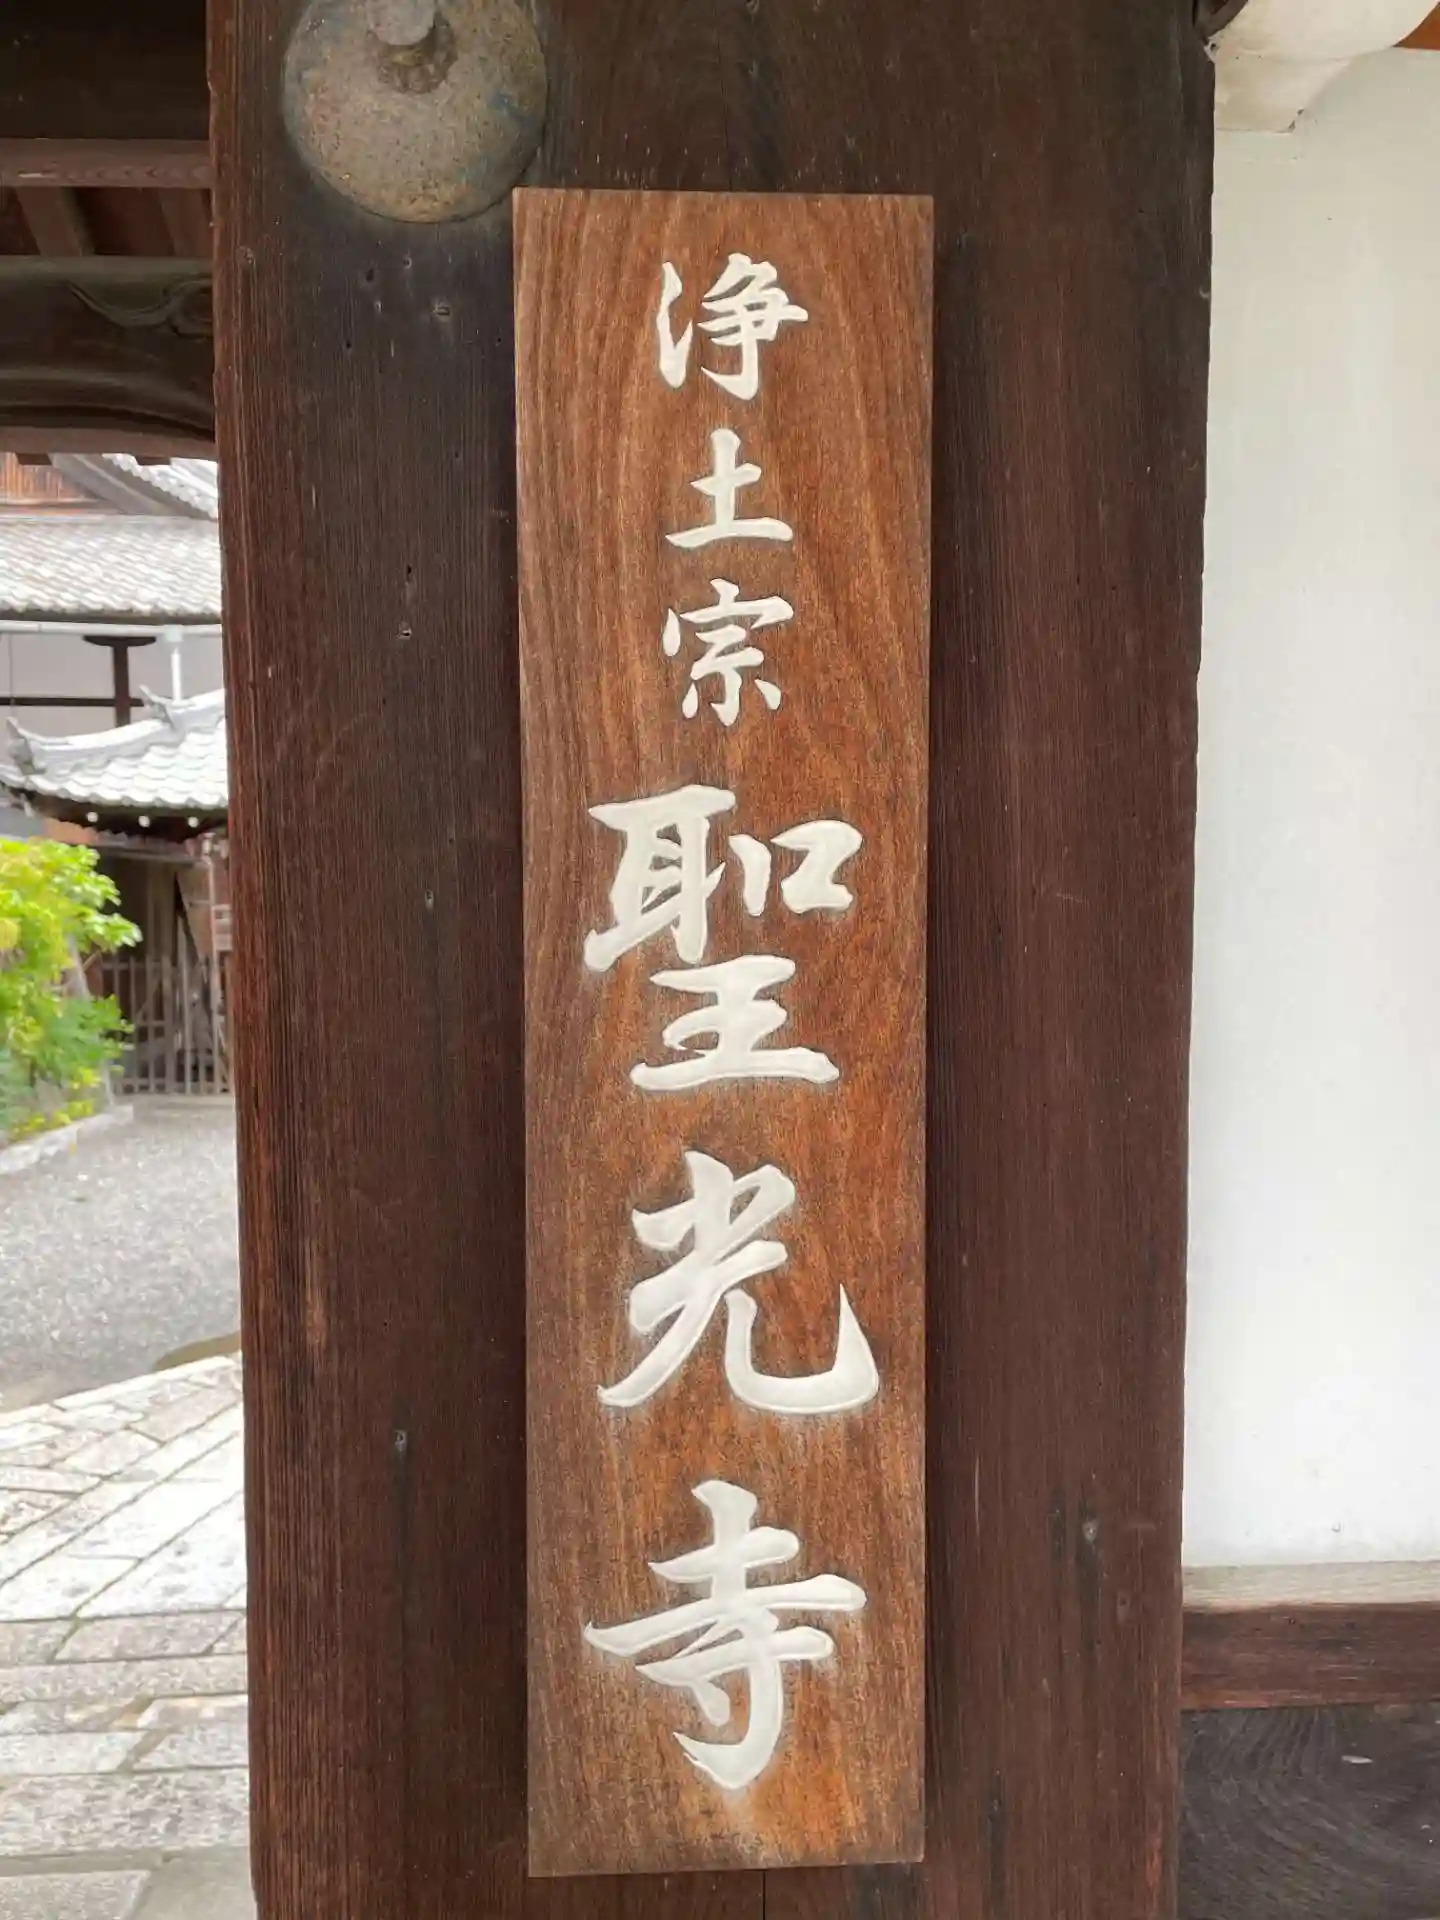 浄土宗聖光寺